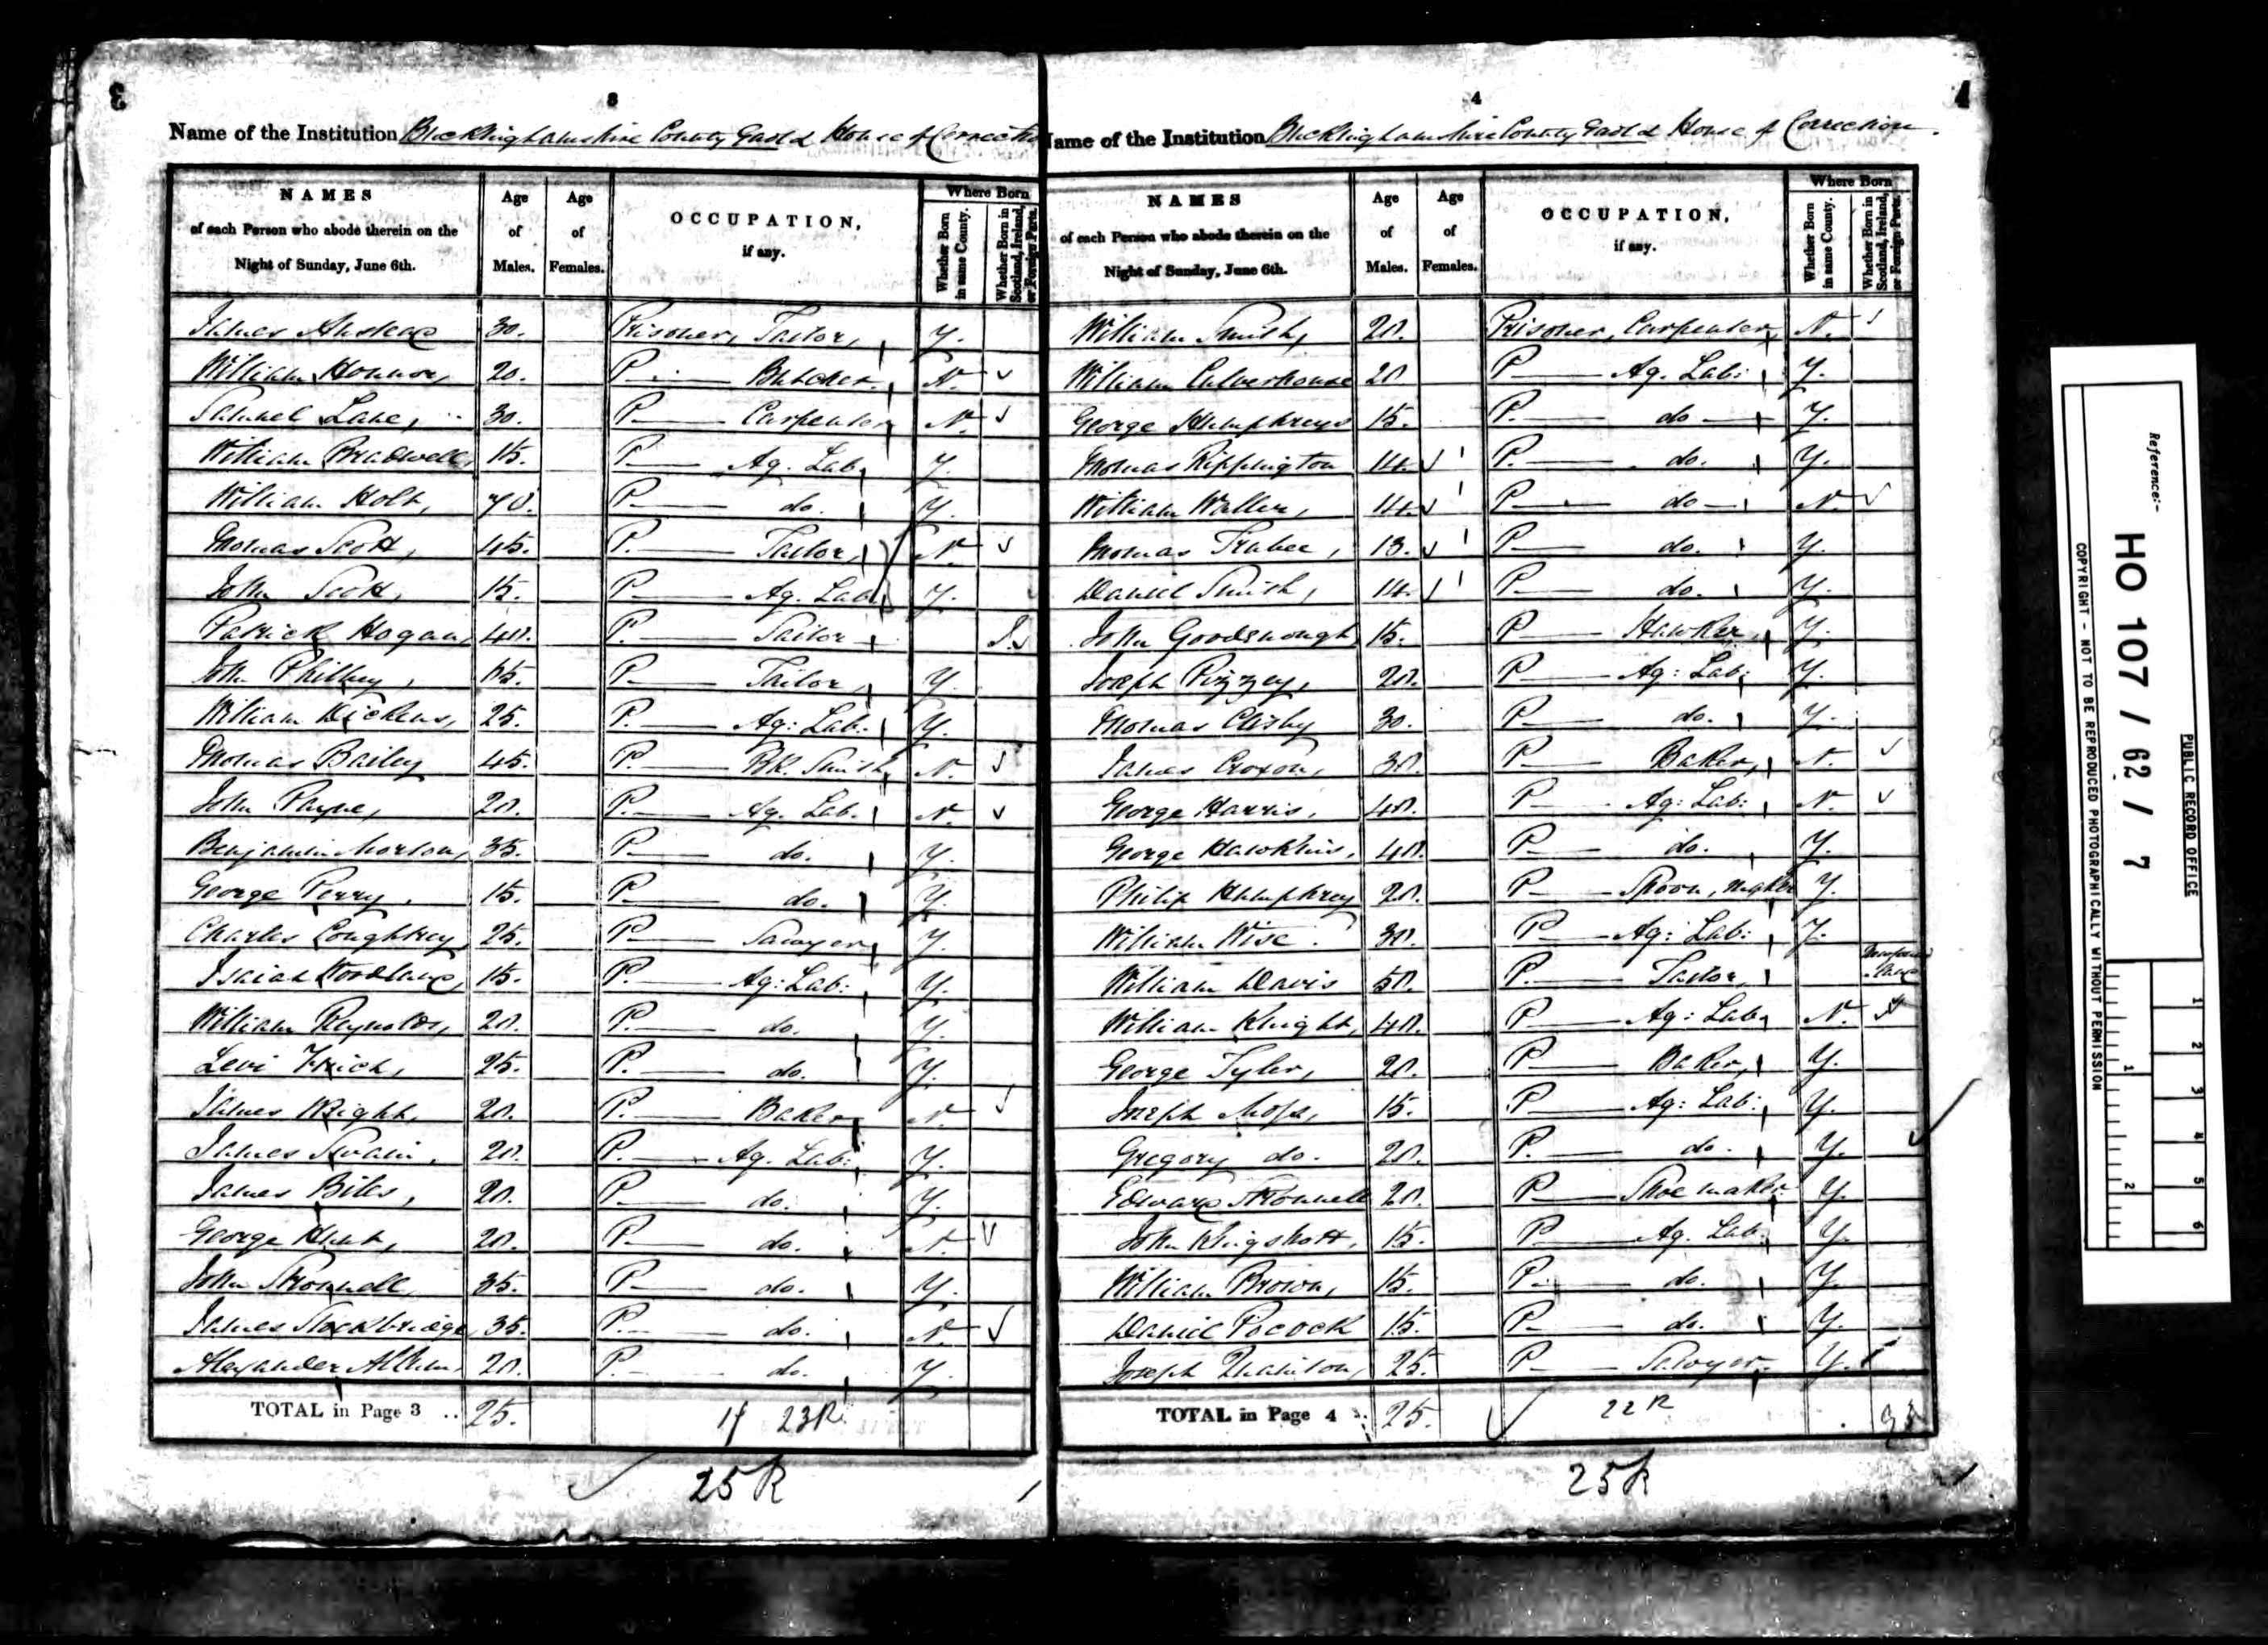 3
3
Name of the Institution Buckinghamshire County Gaol & House of Correction
NAMES of each Person who abode therein on the Night of Sunday, June 6th. Age of Males. Age of Females. OCCUPATION, if any. Where Born Whether Born in same County. Whether Born in Scotland, Ireland, or Foreign Parts.
James 30. Prisoner, Tailor, Y.
William Honnor, 20. P. Butcher, N.
Samuel Lane, 30. P. Carpenter, N.
William Bradwell, 15. P. Ag. Lab. Y.
William Holt, 70. P. do. Y.
Thomas Scott, 45. P. Tailor, N.
John Scott, 15. P. Ag. Lab. Y.
Patrick Hogan, 40. P. Sailor I.
John Philbey, 65. P. Tailor, Y.
William Dickens, 25. P. Ag: Lab: Y.
Thomas Bailey 45. P. Bk. Smith, N.
John Payne, 20. P. Ag. Lab. N.
Benjamin Morton, 35. P. do. Y.
George Perry, 15. P. do. Y.
Charles Coughtrey, 25. P. Sawyer, Y.
Isaiah 15. P. Ag: Lab: Y.
William Reynolds, 20. P. do. Y.
Levi 25. P. do. Y.
James Wright, 20. P. Baker, N.
James Swain, 20. P. Ag. Lab: Y.
James Biles, 20. P. do. Y.
George Hunt, 20. P. do. N.
John Stonnell, 35. P. do. Y.
James Stockbridge, 35. P. do. N.
Alexander 20. P. do. Y.
TOTAL in Page 3 .. 25. 23R
25R
4
4
Name of the Institution Buckinghamshire County Gaol & House of Correction.
NAMES of each Person who abode therein on the Night of Sunday, June 6th. Age of Males. Age of Females. OCCUPATION, if any. Where Born Whether Born in same County. Whether Born in Scotland, Ireland, or Foreign Parts.
William Smith, 20. Prisoner, Carpenter, N.
William Culverhouse 20 P. Ag. Lab: Y.
George Humphreys 15. P. do Y.
Thomas Rippington 14. P. do. Y.
William Waller, 14. P. do N.
Thomas 13. P. do. Y.
Daniel Smith, 14. P. do. Y.
John Goodenough 15. P. Hawker, Y.
Joseph Pizzey, 20. P. Ag: Lab: Y.
Thomas Clisby 30. P. do. Y.
James Croxon, 30. P. Baker, N.
George Harris, 40. P. Ag: Lab: N.
George Hawkins, 40. P. do. Y.
Philip Humphrey 20. P. Spoon, maker Y.
William Wise. 30. P. Ag: Lab: Y.
William Davis 50. P. Tailor,
William Knight, 40. P. Ag: Lab. N.
George Tyler, 20. P. Baker, Y.
Joseph Moss, 15. P. Ag: Lab: Y.
Gregory do. 20. P. do. Y.
Edward Stonnell 20. P. Shoe maker. Y.
John Kingshott, 15. P. Ag. Lab. Y.
William Brown, 15. P. do. Y.
Daniel Pocock 15. P. do. Y.
Joseph 25. P. Sawyer, Y.
TOTAL in Page 4 .. 25. 22R
25R
Reference:-
HO 107 / 62 / 7
PUBLIC RECORD OFFICE
COPYRIGHT - NOT TO BE REPRODUCED PHOTOGRAPHICALLY WITHOUT PERMISSION
1 2
1 2 3 4 5 6